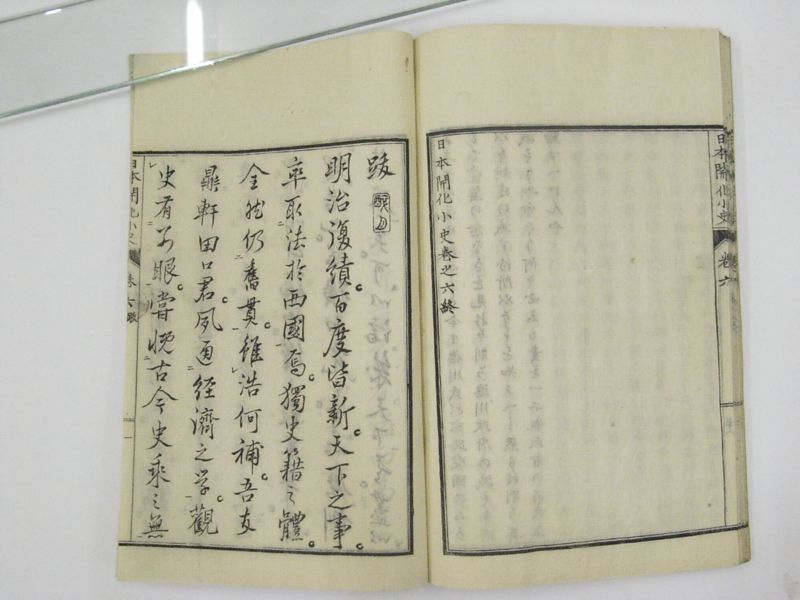 日本開化小史
卷六
日本開化小史卷之六終
跋
明治復績百度皆新天下之事
率取法於西國焉獨史籍之體
全然仍舊貫雖浩何補吾友
鼎軒田口君夙通經濟之学觀
史有活眼嘗慨古今史乘之無
日本開化小史
卷六跋